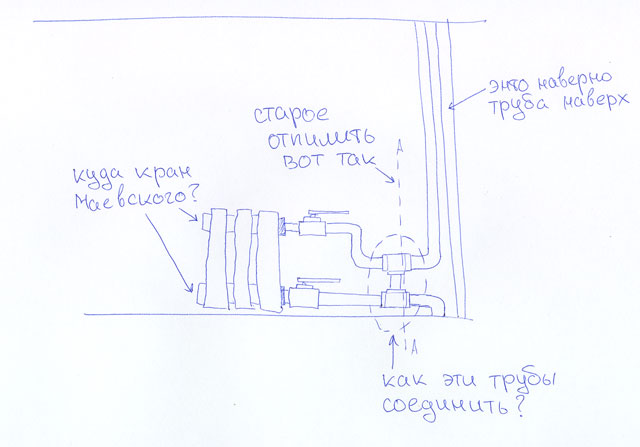 энто наверно
труба наверх
старое
отпилить
вот так
А
куда кран
Маевского?
А
как эти трубы
соединить?